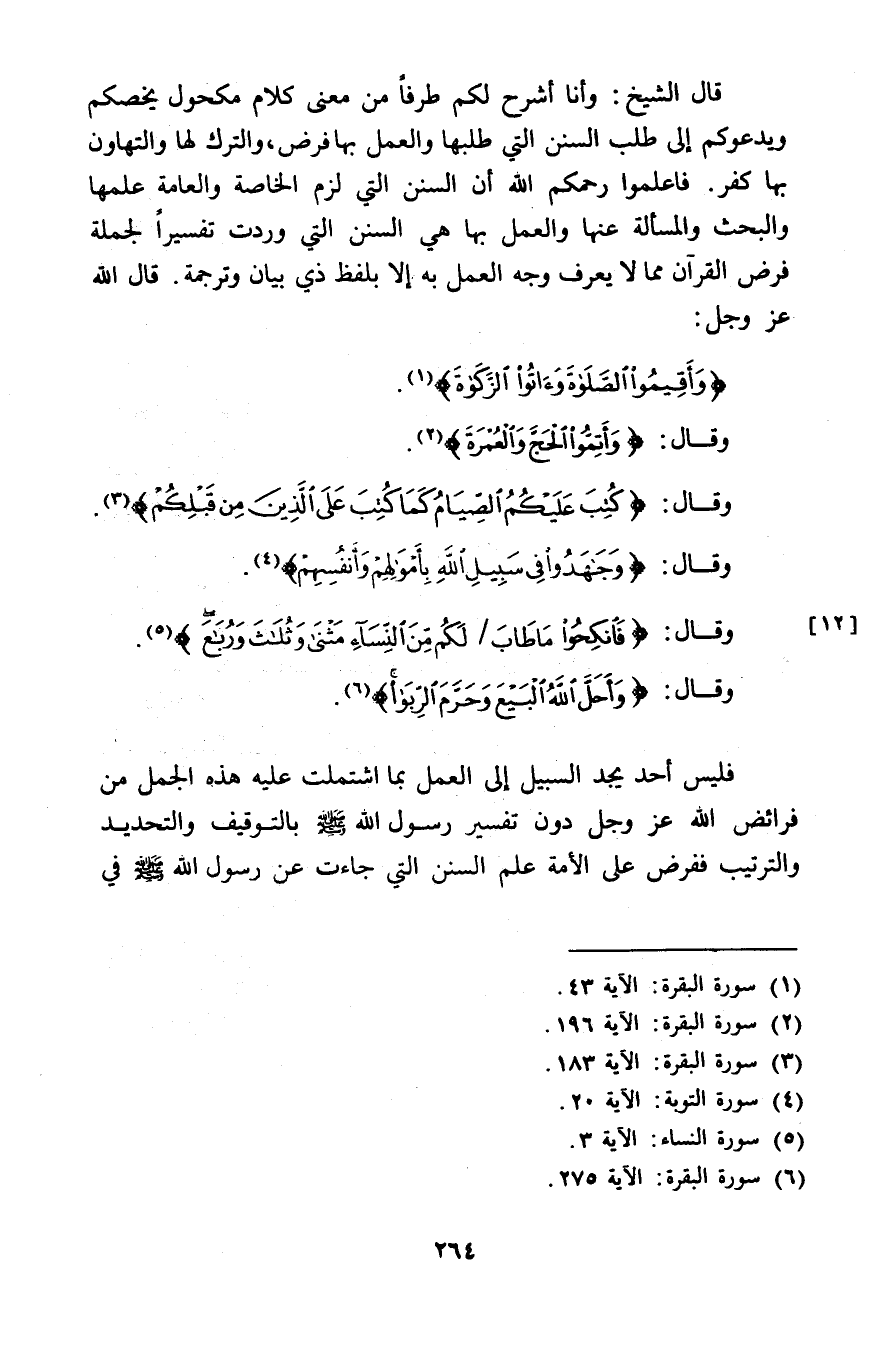 قال الشيخ: وأنا أشرح لكم طرفاً من معنى كلام مكحول يخصكم
ويدعوكم إلى طلب السنن التي طلبها والعمل بها فرض، والترك لها والتهاون
بها كفر. فاعلموا رحمكم الله أن السنن التي لزم الخاصة والعامة علمها
والبحث والمسألة عنها والعمل بها هي السنن التي وردت تفسيراً لجملة
فرض القرآن مما لا يعرف وجه العمل به إلا بلفظ ذي بيان وترجمة. قال الله
عز وجل:
﴿وَأَقِيمُوا۟ ٱلصَّلَوٰةَ وَءَاتُوا۟ ٱلزَّكَوٰةَ﴾(١).
وقـال: ﴿وَأَتِمُّوا۟ ٱلْحَجَّ وَٱلْعُمْرَةَ﴾(٢).
وقـال: ﴿كُتِبَ عَلَيْكُمُ ٱلصِّيَامُ كَمَا كُتِبَ عَلَى ٱلَّذِينَ مِن قَبْلِكُمْ﴾(٣).
وقـال: ﴿وَجَٰهَدُوا۟ فِى سَبِيلِ ٱللَّهِ بِأَمْوَٰلِهِمْ وَأَنفُسِهِمْ﴾(٤).
[١٢] وقـال: ﴿فَٱنكِحُوا۟ مَا طَابَ / لَكُم مِّنَ ٱلنِّسَآءِ مَثْنَىٰ وَثُلَٰثَ وَرُبَٰعَ ۖ﴾(٥).
وقـال: ﴿وَأَحَلَّ ٱللَّهُ ٱلْبَيْعَ وَحَرَّمَ ٱلرِّبَوٰا۟ ۚ﴾(٦).
فليس أحد يجد السبيل إلى العمل بما اشتملت عليه هذه الجمل من
فرائض الله عز وجل دون تفسير رسول الله ﷺ بالتوقيف والتحديد
والترتيب ففرض على الأمة علم السنن التي جاءت عن رسول الله ﷺ في
(١) سورة البقرة: الآية ٤٣.
(٢) سورة البقرة: الآية ١٩٦.
(٣) سورة البقرة: الآية ١٨٣.
(٤) سورة التوبة: الآية ٢٠.
(٥) سورة النساء: الآية ٣.
(٦) سورة البقرة: الآية ٢٧٥.
٢٦٤